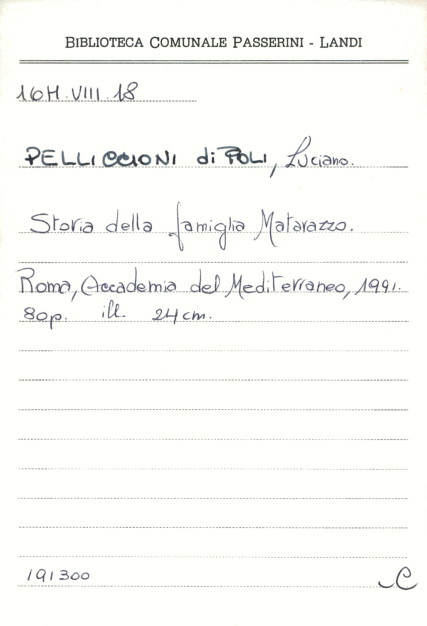 BIBLIOTECA COMUNALE PASSERINI - LANDI
16H.VIII.18
PELLICCIONI di POLI, Luciano.
Storia della famiglia Matarazzo.
Roma, Accademia del Mediterraneo, 1991.
80p. ill. 24cm.
191300
C